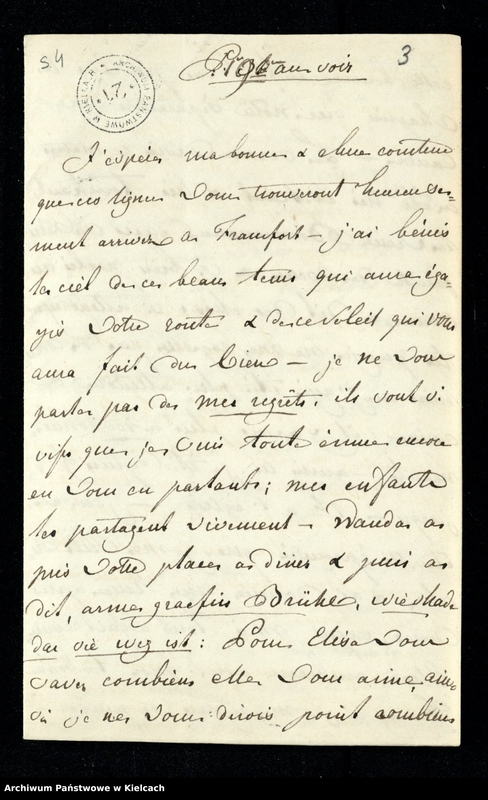 S.4
3
ARCHIWUM PAŃSTWOWE W KIELCACH
au voir
J'espère ma bonne & chère comtesse
que ces lignes vous trouveront heureuse-
ment arrivée à Francfort – j'ai bénis
le ciel de ce beau tems qui aura éga-
yé votre route & de ce soleil qui vous
aura fait du bien – je ne vous
parle pas de mes regrêts, ils sont si
vifs que je suis toute émue encore
en vous en parlant; mes enfants
les partagent vivement – Wanda a
pris votre place à diner & puis a
dit, arme graefin Brühl, wie schade
das sie weg ist: Pour Elisa vous
savez combien elle vous aime, ainsi
je ne vous dirois point combien
Archiwum Państwowe w Kielcach